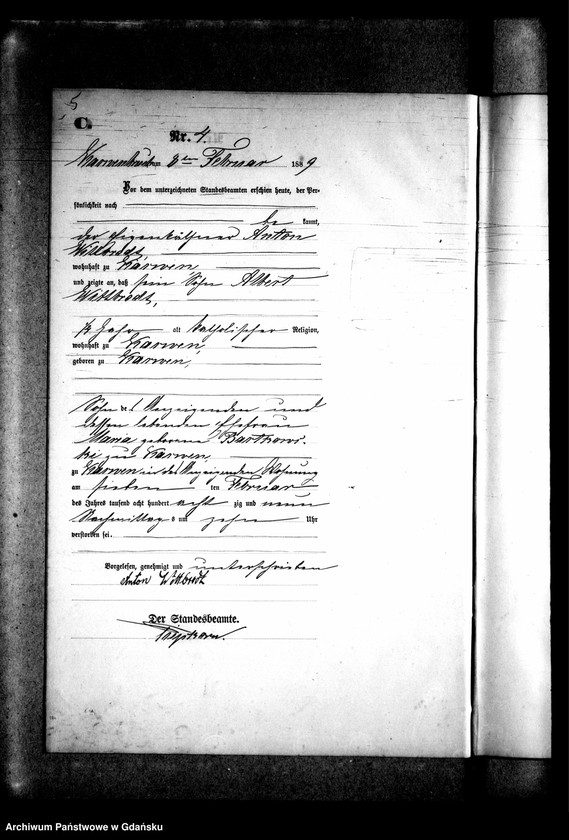 5
C.
Nr. 4.
Karwenbruch am 8 ten Februar 1889
Vor dem unterzeichneten Standesbeamten erschien heute, der Per-
sönlichkeit nach
be kannt,
der Eigenkäthner Anton
Wittbrodt,
wohnhaft zu Karwen,
und zeigte an, daß sein Sohn Albert
Wittbrodt,
Jahr alt katholischer Religion,
wohnhaft zu Karwen,
geboren zu Karwen,
Sohn des Anzeigenden und
dessen lebenden Ehefrau
Maria geborene Bartkows-
ki zu Karwen,
zu Karwen in des Anzeigenden Wohnung
am sieben ten Februar
des Jahres tausend acht hundert acht zig und neun
Nachmittags um zehn Uhr
verstorben sei.
Vorgelesen, genehmigt und unterschrieben
Anton Wittbrodt
Der Standesbeamte.
Archiwum Państwowe w Gdańsku